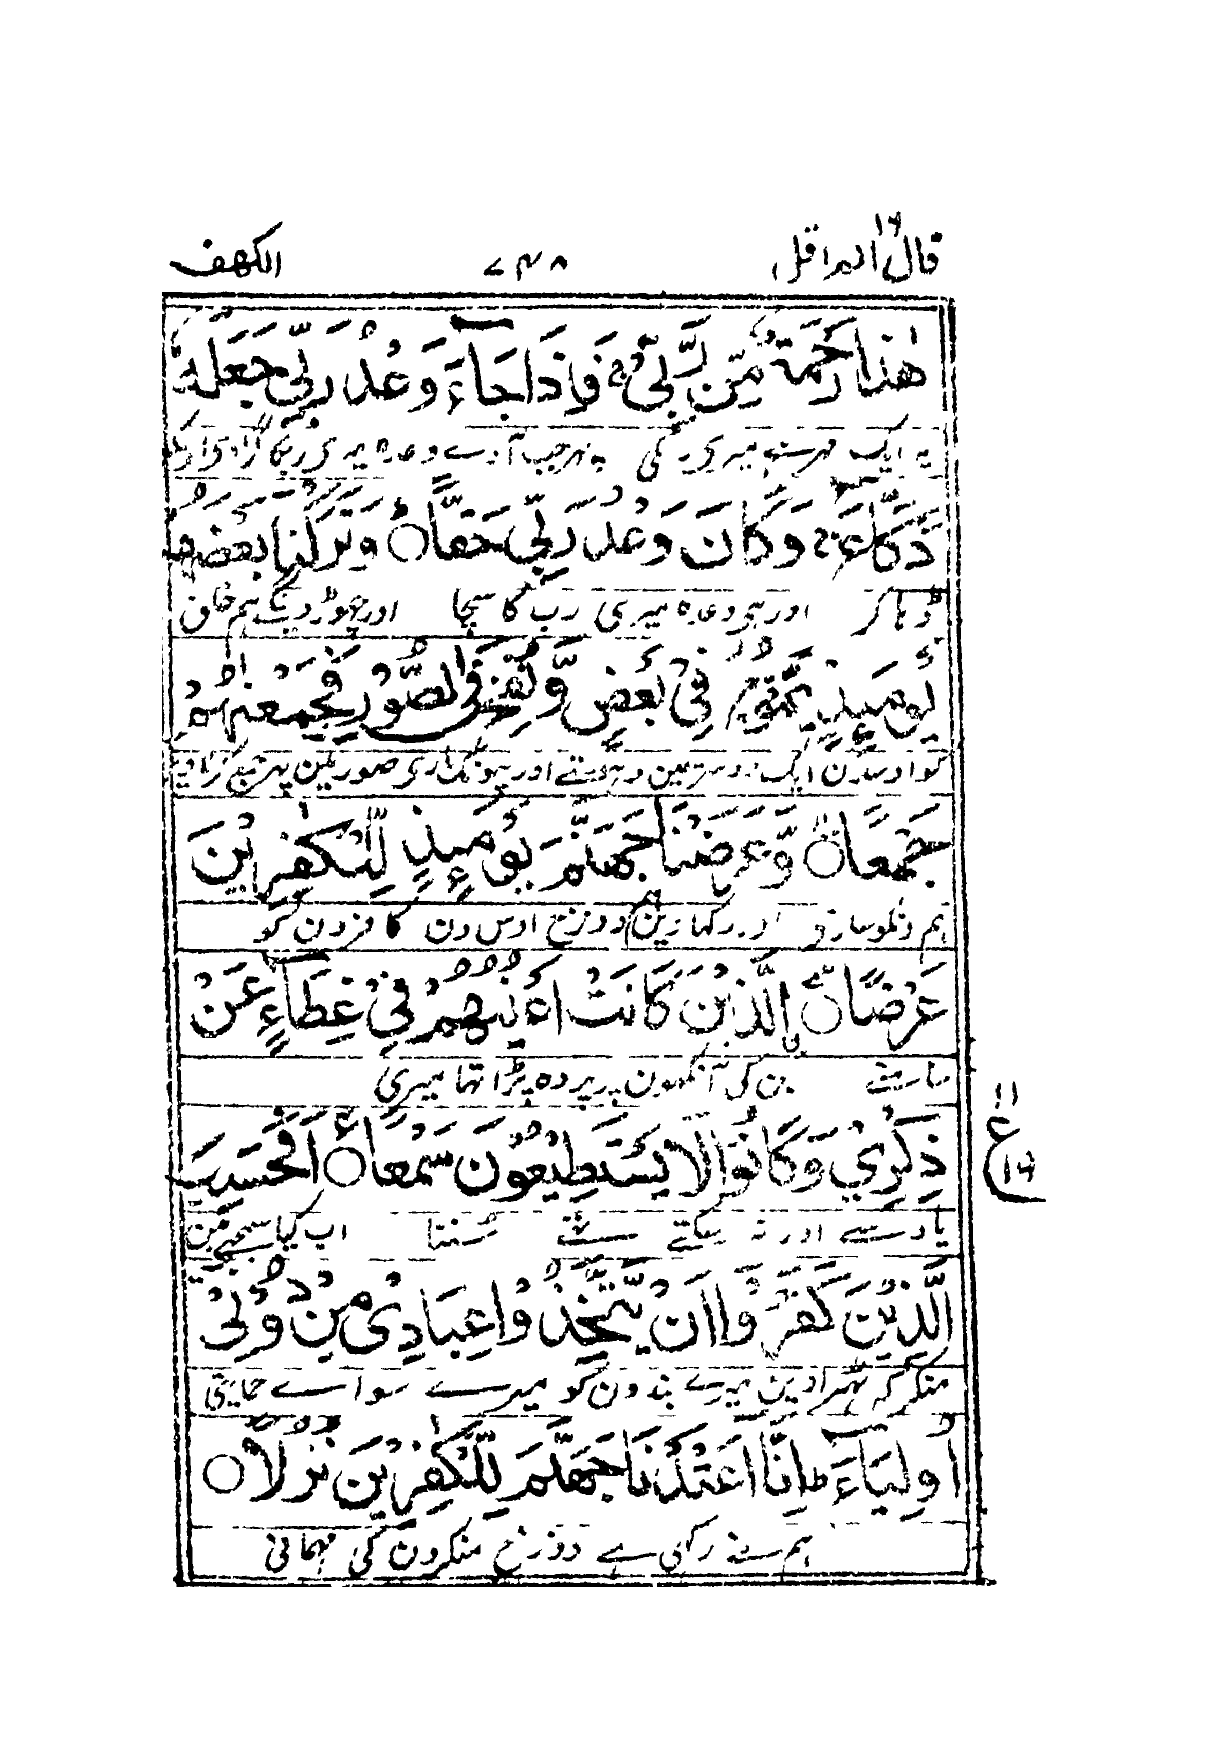 قال الم اقل ۱۶
۷۴۸
الكهف
هٰذَا رَحْمَةٌ مِّنْ رَّبِّيْ ۚ فَاِذَا جَآءَ وَعْدُ رَبِّيْ جَعَلَهٗ
یہ ایک مہر ہے میری رب کی پھر جب آوے وعدہ میری رب کا گرا دی اوسکو
دَكَّآءَ ۚ وَكَانَ وَعْدُ رَبِّيْ حَقًّا ۝ وَتَرَكْنَا بَعْضَهُمْ
ڈہا کر اور ہی وعدہ میری رب کا سچا اور چھوڑ دینگے ہم خلق
يَوْمَئِذٍ يَّمُوْجُ فِيْ بَعْضٍ وَّنُفِخَ فِى الصُّوْرِ فَجَمَعْنٰهُمْ
کو اوسدن ایک دوسرمین دہنستے اور پہونک ماری صور مین پہر جمع کر لاوین
جَمْعًا ۝ وَّعَرَضْنَا جَهَنَّمَ يَوْمَئِذٍ لِّلْكٰفِرِيْنَ
ہم اونکو سارے اور دکہا دین ہم دوزخ اوس دن کافرون کو
عَرْضًا ۝ الَّذِيْنَ كَانَتْ اَعْيُنُهُمْ فِيْ غِطَآءٍ عَنْ
سامنے جن کی آنکہون پر پردہ پڑا تہا میری
ذِكْرِيْ وَكَانُوْا لَا يَسْتَطِيْعُوْنَ سَمْعًا ۝ اَفَحَسِبَ
۱۱
ع
۱۶
یاد سے اور نہ سکتے تہے سننا اب کیا سمجہے ہین
الَّذِيْنَ كَفَرُوْا اَنْ يَّتَّخِذُوْا عِبَادِيْ مِنْ دُوْنِيْ
منکر کہ ٹہراوین میرے بندون کو میرے سوا سے حمایتی
اَوْلِيَآءَ ؕ اِنَّا اَعْتَدْنَا جَهَنَّمَ لِلْكٰفِرِيْنَ نُزُلًا ۝
ہم نے رکہی ہے دوزخ منکرون کی مہمانی